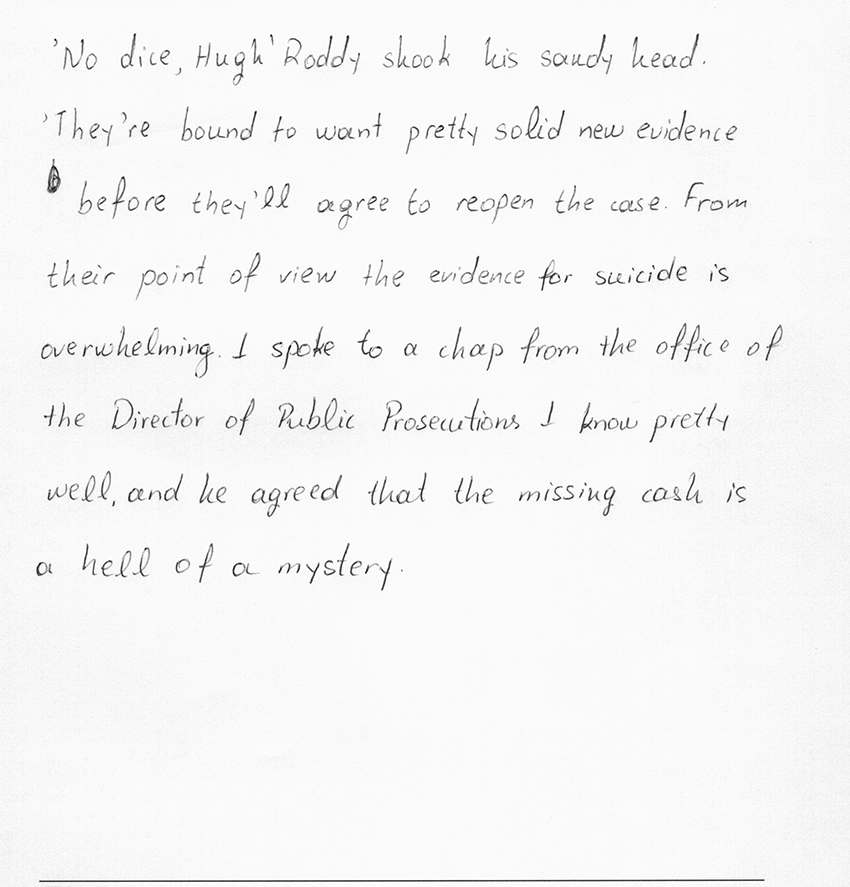 'No dice, Hugh' Roddy shook his sandy head.
'They're bound to want pretty solid new evidence
before they'll agree to reopen the case. From
their point of view the evidence for suicide is
overwhelming. I spoke to a chap from the office of
the Director of Public Prosecutions I know pretty
well, and he agreed that the missing cash is
a hell of a mystery.